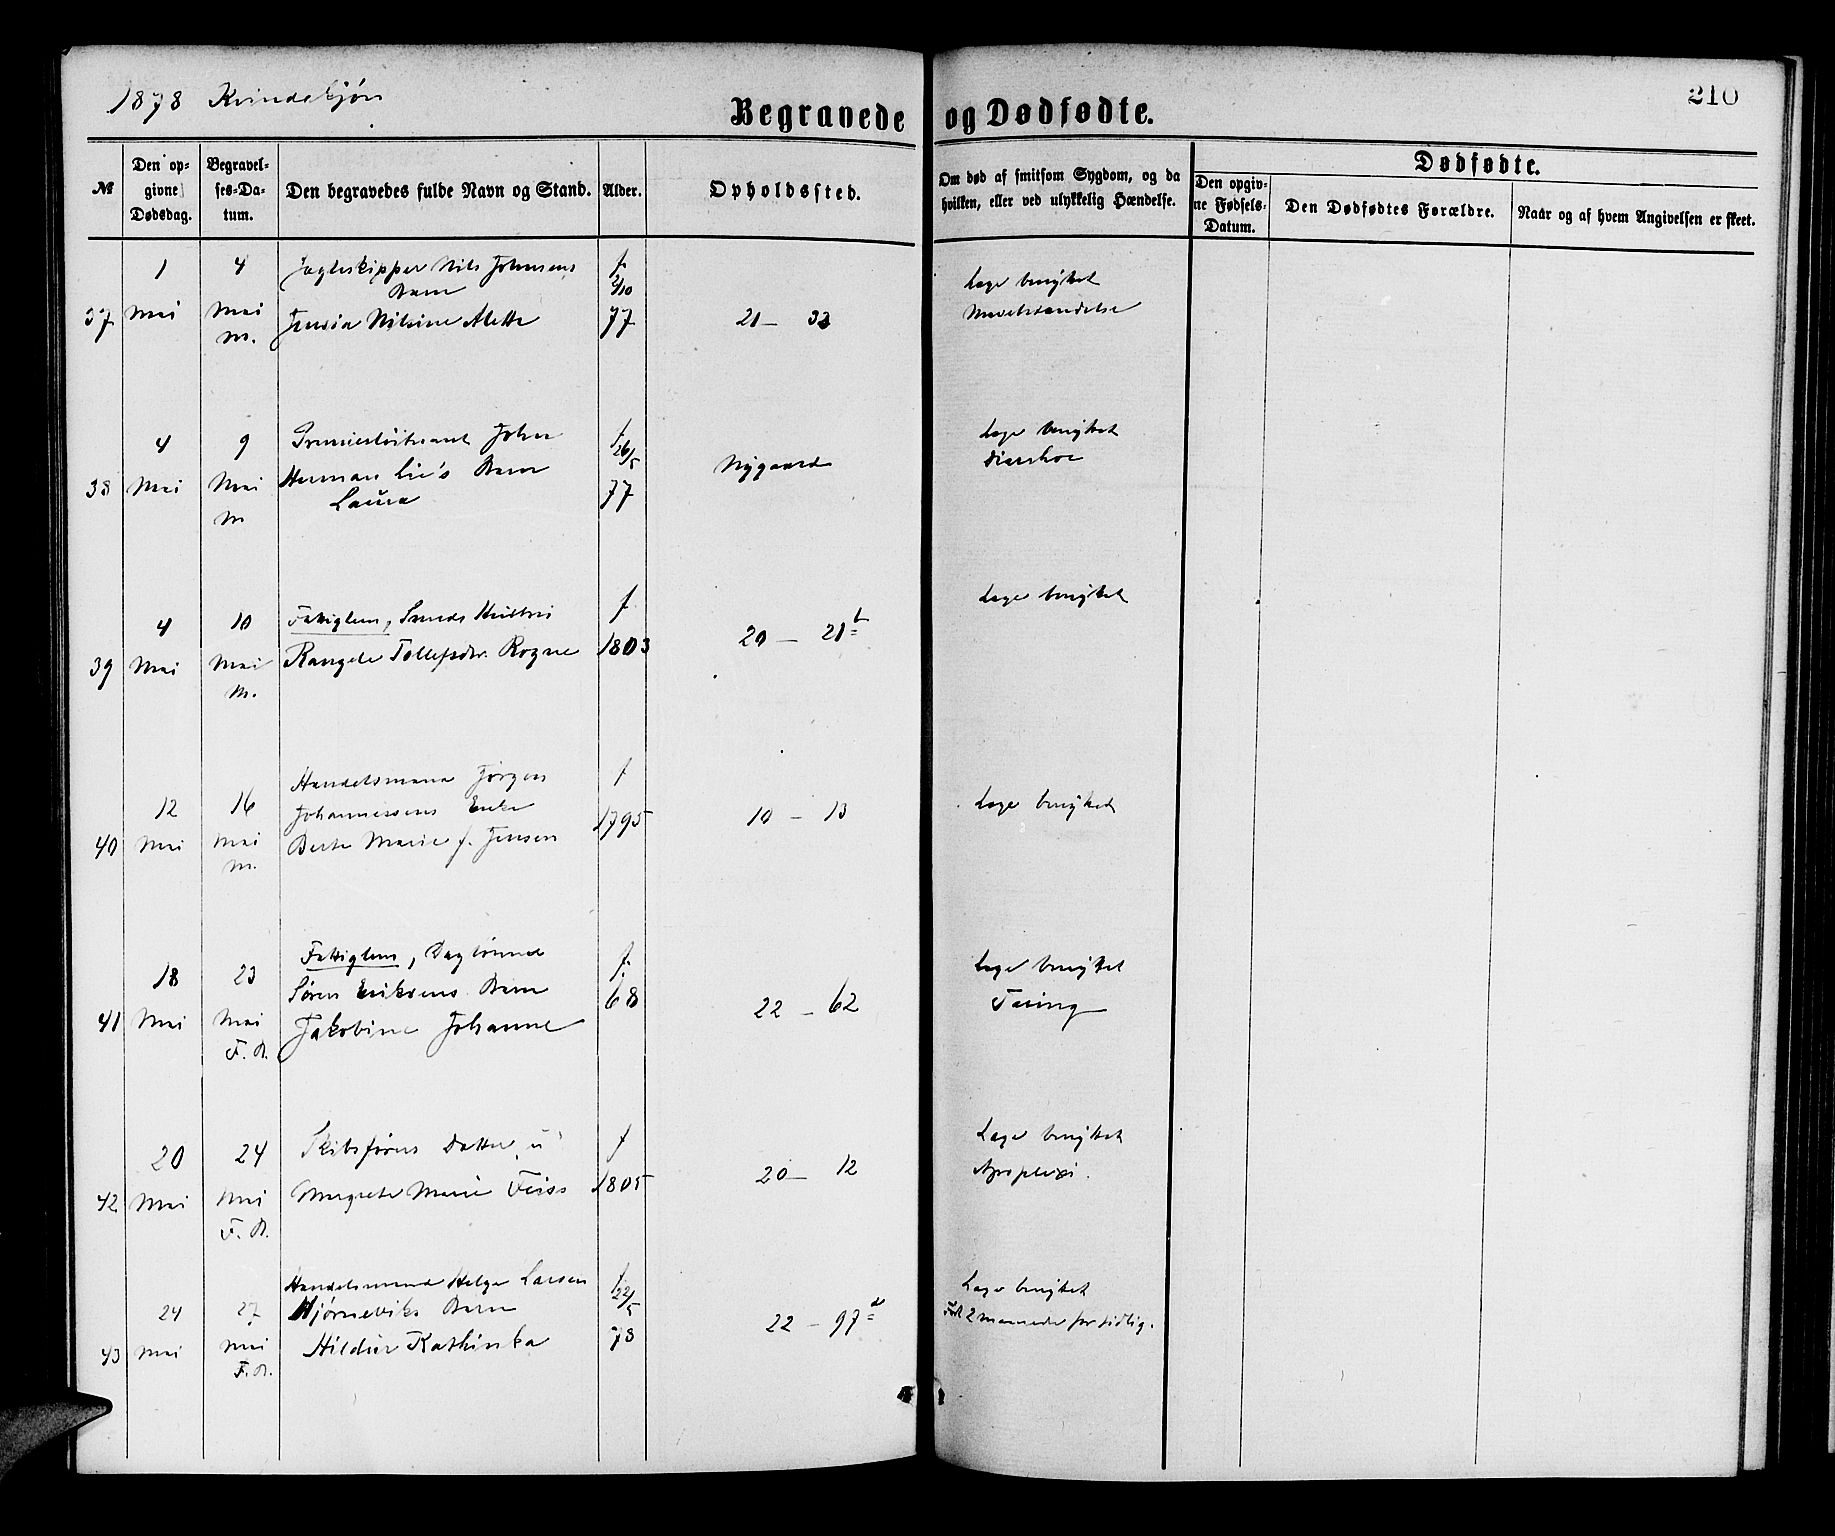 1878 Kvindekjøn
210
Begravede og Dødfødte.
№
Den opgivne Dødsdag.
Begravelses-Datum.
Den begravedes fulde Navn og Stand.
Alder.
Opholdssted.
Om død af smitsom Sygdom, og da hvilken, eller ved ulykkelig Hændelse.
Dødfødte.
Den opgivne Fødsels-Datum.
Den Dødfødtes Forældre.
Naar og af hvem Angivelsen er skeet.
37
1 Mai
4 Mai M.
Jagteskipper Nils Johnsens
Barn
Jensia Nilsine Alette
f. 2/10 77
21 – 33
Læge benyttet
38
4 Mai
9 Mai M
Premierløitnant John
Herman Lie's Barn
Laura
f. 26/5 77
Nygaard
Læge benyttet
Diarrhoe
39
4 Mai
10 Mai M.
Fattiglem, Smeds Hustru
Rangele Tollefsdtr. Rogne
f 1803
20 – 21b
Læge benyttet
40
12 Mai
16 Mai M.
Handelsmand Jørgen
Johannessens Enke
Berte Marie f. Jensen
f 1795
10 – 13
Læge benyttet
41
18 Mai
23 Mai F. A.
Fattiglem, Daglønned
Søren Eriksens Barn
Jakobine Johanne
f. 68
22 – 62
Læge benyttet
Tæring
42
20 Mai
24 Mai F. A.
Skibsførers Datter, u
Margrete Marie
f 1805
20 – 12
Læge benyttet
Apoplexi.
43
24 Mai
27 Mai F. A.
Handelsmand Helge Larsen
Hjørneviks Barn
Hildur Kathinka
f 22/5 78
22 – 97d
Læge benyttet
Født 2 maaneder for tidlig.